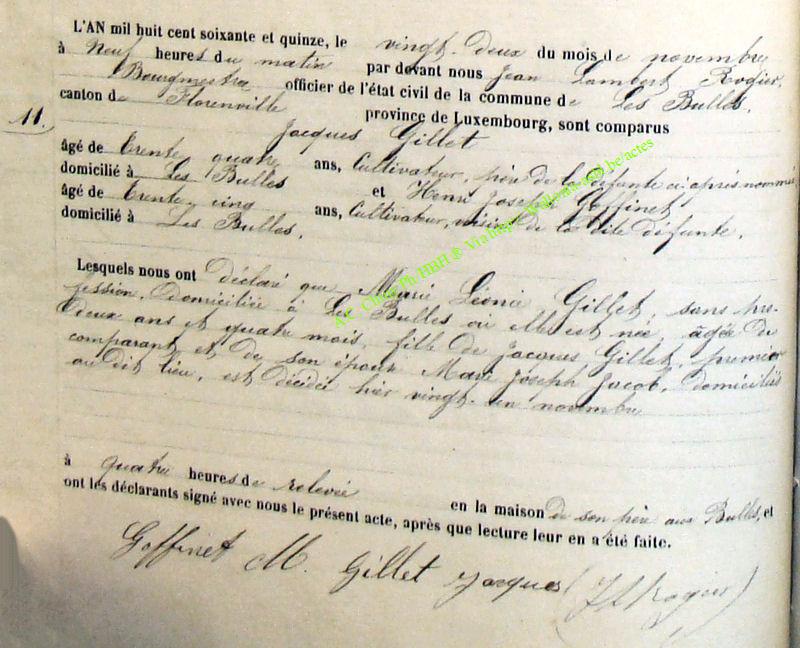 L'AN mil huit cent soixante et quinze, le vingt-deux du mois de novembre
à Neuf heures du matin par devant nous Jean Lambert Rogier,
Bourgmestre officier de l'état civil de la commune de Les Bulles,
canton de Florenville province de Luxembourg, sont comparus
11.
Jacques Gillet
âgé de trente quatre ans, Cultivateur, père de la défunte ci-après nommée
domicilié à Les Bulles et Henri Joseph Goffinet
âgé de trente cinq ans, Cultivateur, voisin de la dite défunte,
domicilié à Les Bulles,
Lesquels nous ont déclaré que Marie Léonie Gillet, sans pro-
fession, domiciliée à Les Bulles où elle est née, âgée de
deux ans et quatre mois, fille de Jacques Gillet, premier
comparant et de son épouse Marie Joseph Jacob, domiciliés
au dit lieu, est décédée hier vingt-un novembre
à quatre heures de relevée en la maison de son père aux Bulles, et
ont les déclarants signé avec nous le présent acte, après que lecture leur en a été faite.
Goffinet M. Gillet Jacques JLRogier